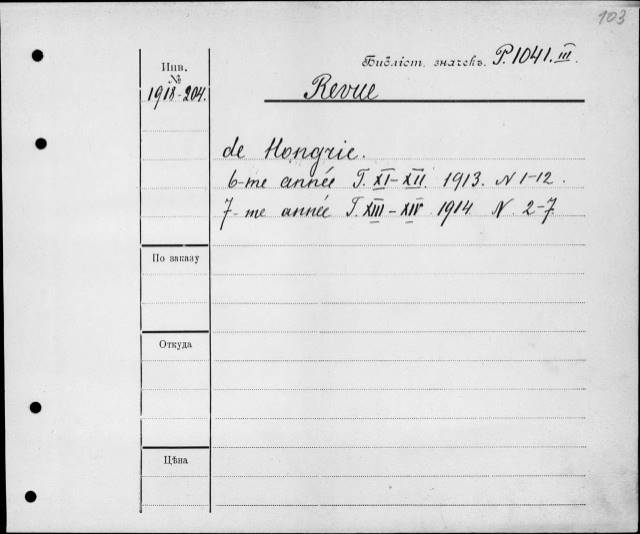 103
Библіот. значекъ. P.1041.III.
Инв.
№
1918-204.
Revue
de Hongrie.
6-me année T. XI-XII 1913. N 1-12.
7-me année T. XIII-XIV 1914. N. 2-7.
По заказу
Откуда
Цѣна